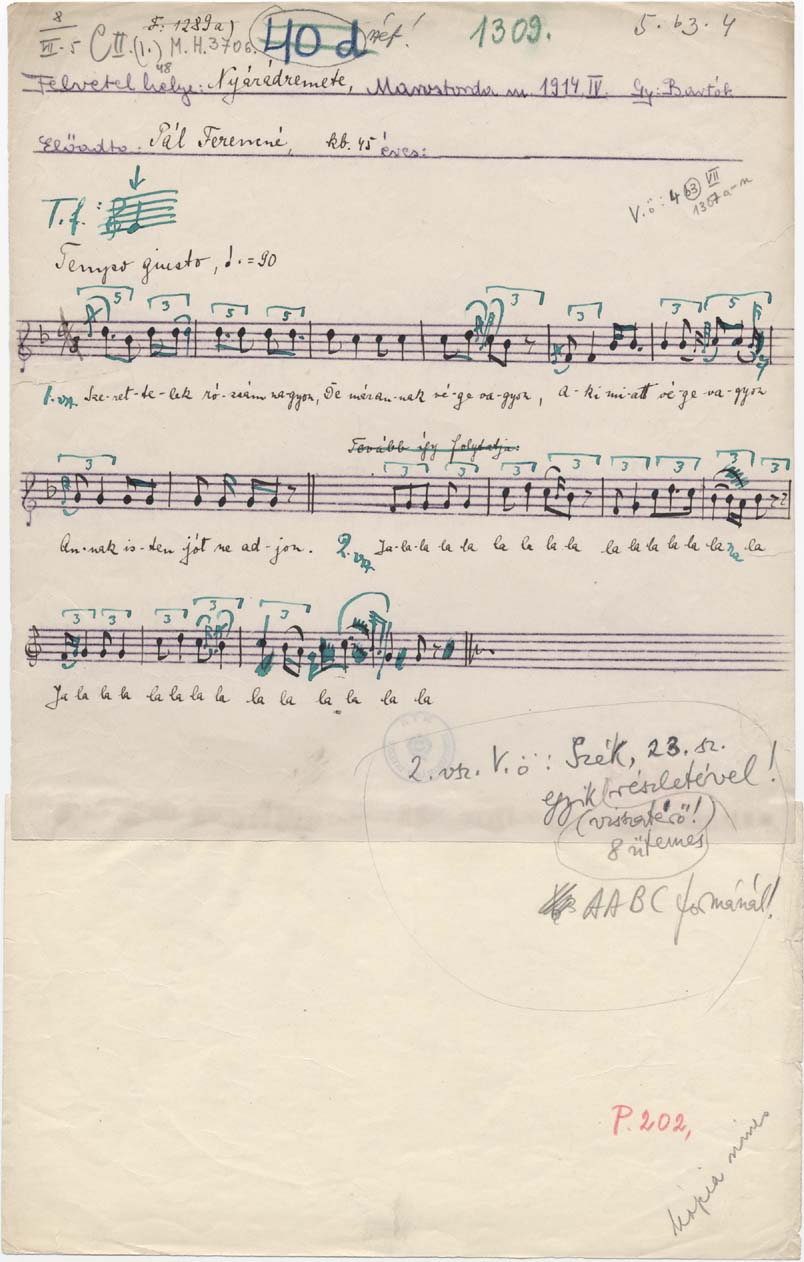 8
VII-5 C II.(1.) M.H.3706. 40 d 1309. 5. b3. 4
F. 1289a)
48
Felvétel helye: Nyárádremete, Marostorda m. 1914. IV. Gy: Bartók
Előadta: Pál Ferencné, kb. 45 éves:
V.ö: 4 b3 VII
1307 a-n
T.f.:
Tempo giusto, = 90
5 3 5 3 3 3 3 5
1. vsz. Sze-ret-te-lek ró-zsám na-gyon, De már an-nak vé-ge va-gyon, A-ki mi-att vé-ge va-gyon
Tovább így folytatja:
3 3 3 3 3 3 3 3
An-nak is-ten jót ne ad-jon. 2. vsz. Ja-la-la la la la la la la la la la la la la na la
3 3 3 3
Ja la la la la la la la la la la la la la
2. vsz. V.ö: Szék, 23. sz.
egyik részletével!
(visszatérő!)
8 ütemes
AABC formánál!
P. 202,
kópia nincs